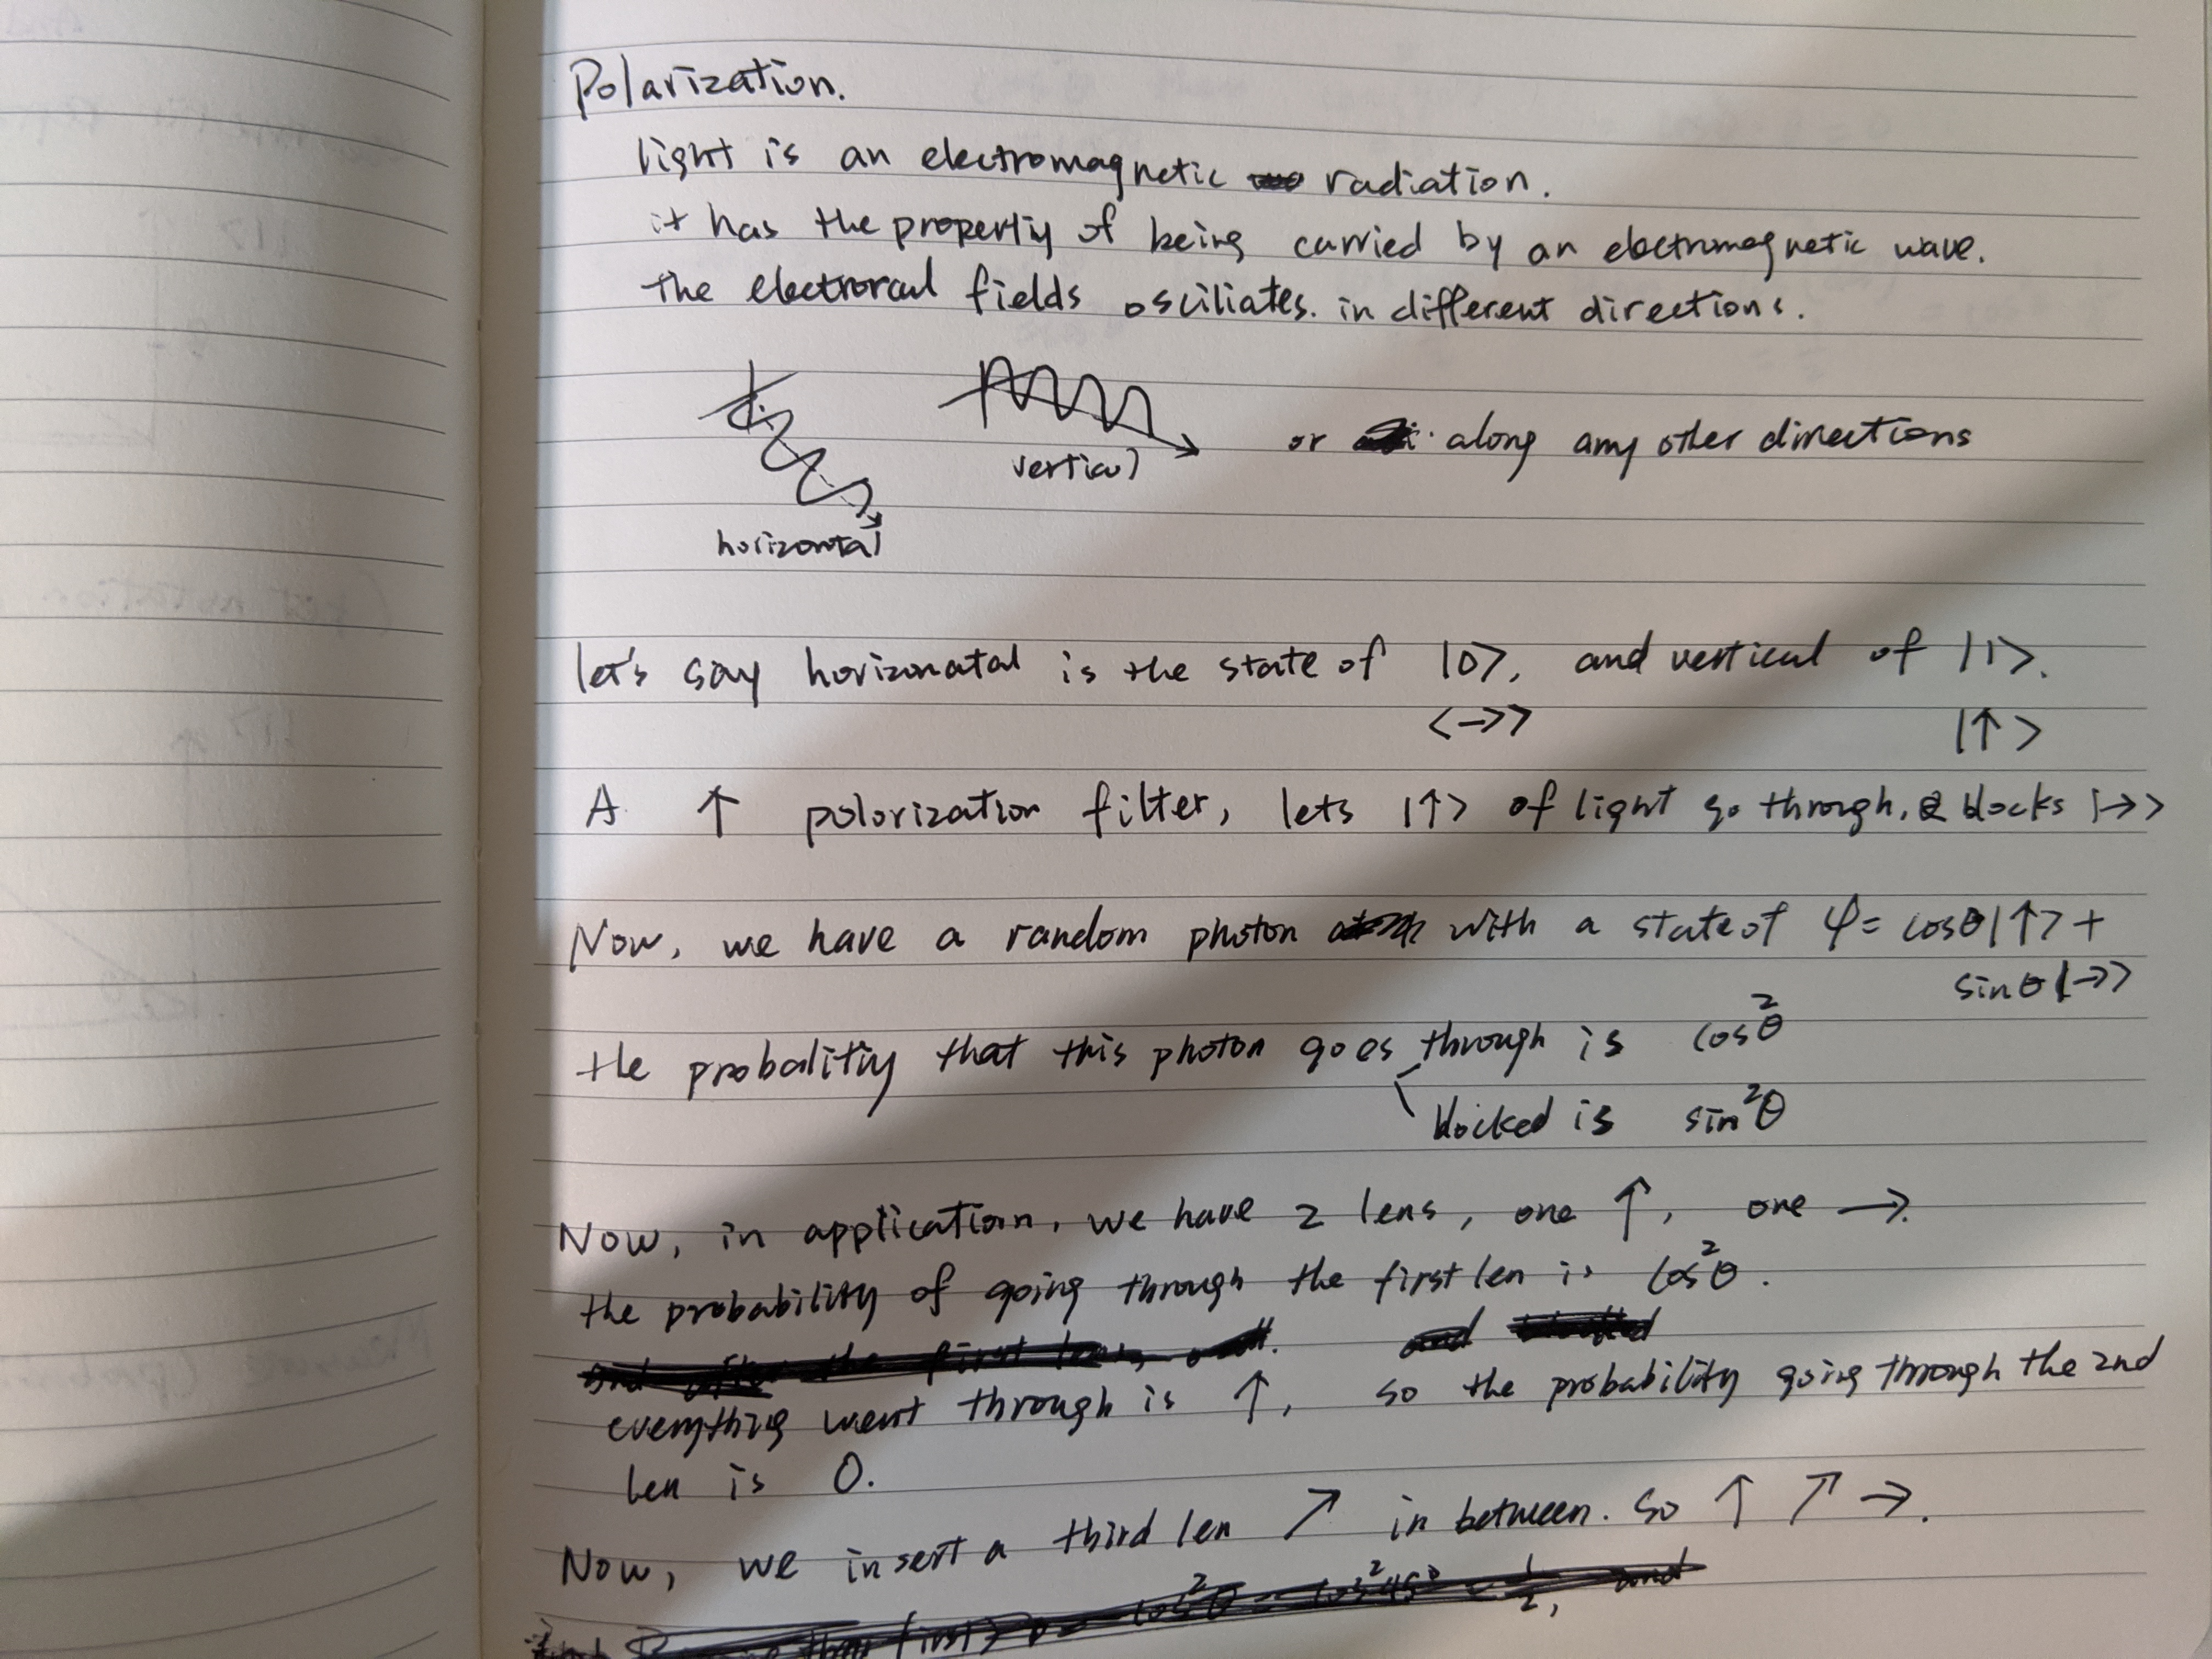 Polarization.
light is an electromagnetic radiation.
it has the property of being carried by an electromagnetic wave.
the electrical fields osciliates in different directions.
or along any other directions
vertical
horizontal
let's say horizonatal is the state of |0>, and vertical of |1>.
<→> |↑>
A ↑ polorization filter, lets |↑> of light go through, & blocks |→>
Now, we have a random photon with a state of ψ = cosθ|↑> +
sinθ|→>
the probability that this photon goes through is cos²θ
blocked is sin²θ
Now, in application, we have 2 lens, one ↑, one →.
the probability of going through the first len is cos²θ.
everything went through is ↑, so the probability going through the 2nd
len is 0.
Now, we insert a third len ↗ in between. so ↑ ↗ →.